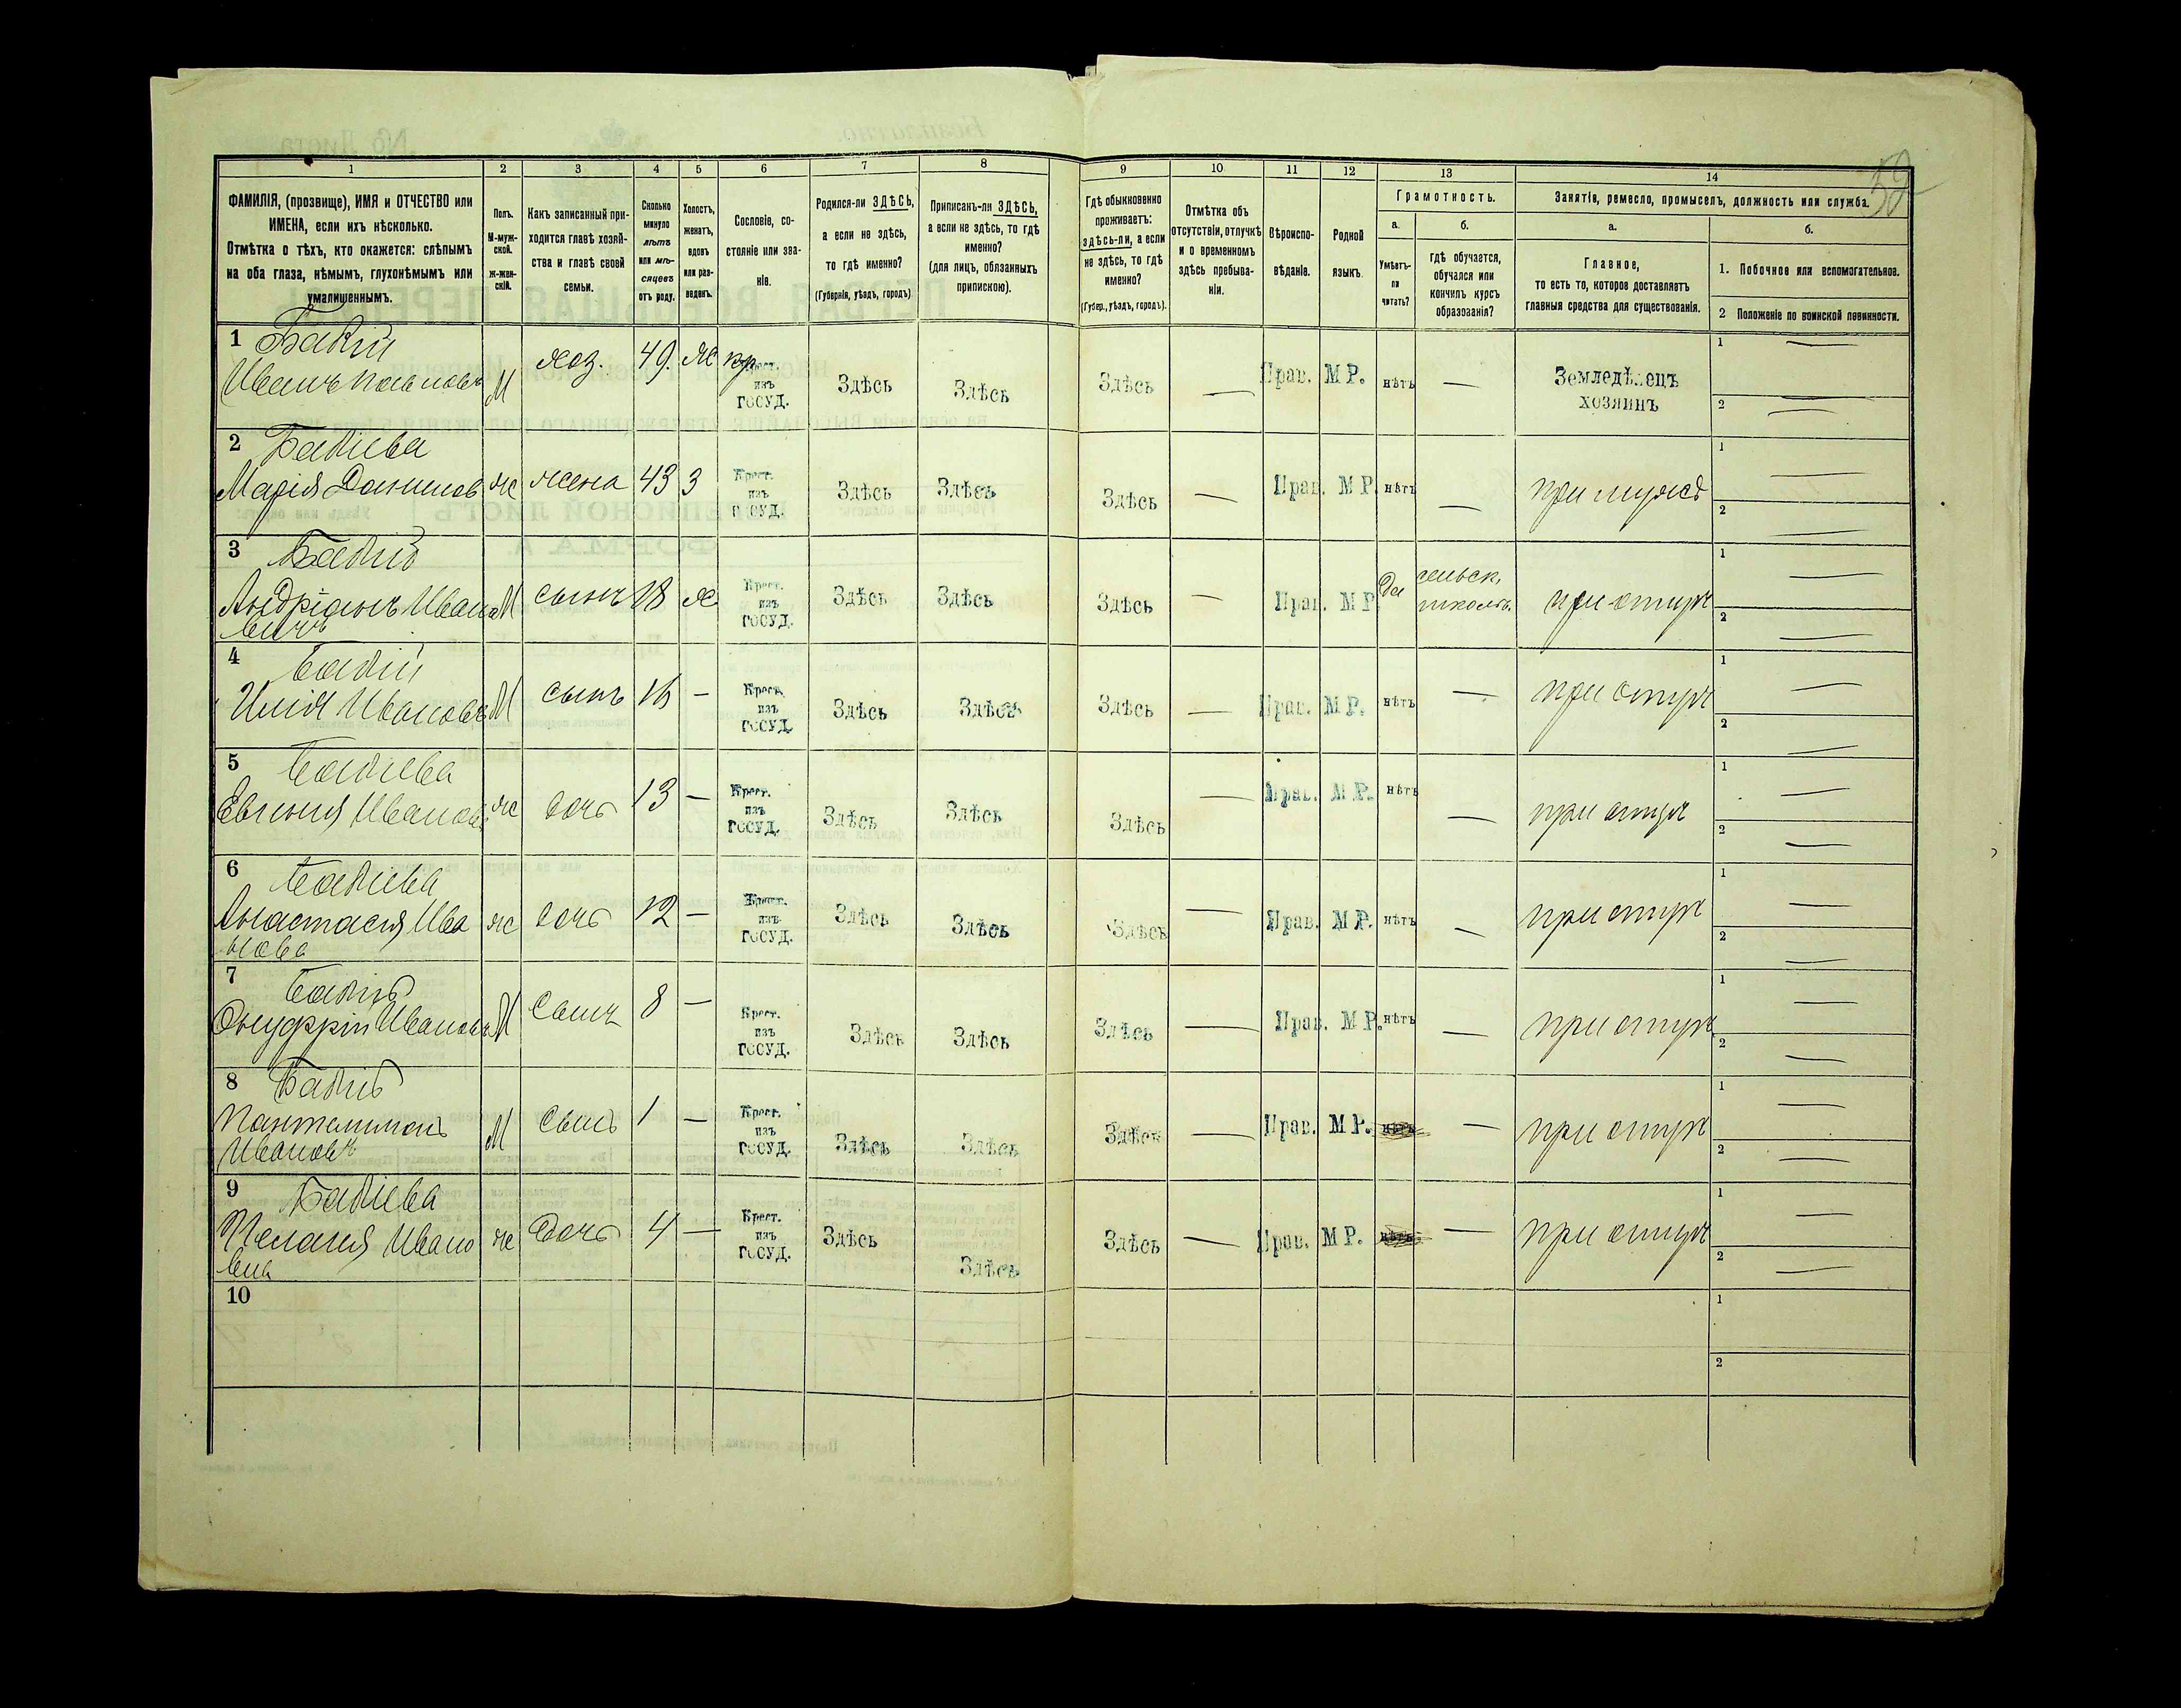 52
1 2 3 4 5 6 7 8 9 10 11 12 13 14
ФАМИЛІЯ, (прозвище), ИМЯ и ОТЧЕСТВО или
ИМЕНА, если ихъ нѣсколько.
Отмѣтка о тѣхъ, кто окажется: слѣпымъ
на оба глаза, нѣмымъ, глухонѣмымъ или
умалишеннымъ.
Полъ.
М-муж-
ской.
ж-жен-
скій.
Какъ записанный при-
ходится главѣ хозяй-
ства и главѣ своей
семьи.
Сколько
минуло
лѣтъ
или мѣ-
сяцевъ
отъ роду.
Холостъ,
женатъ,
вдовъ
или раз-
веденъ.
Сословіе, со-
стояніе или зва-
ніе.
Родился-ли ЗДѢСЬ,
а если не здѣсь,
то гдѣ именно?
(Губернія, уѣздъ, городъ)
Приписанъ-ли ЗДѢСЬ,
а если не здѣсь, то гдѣ
именно?
(для лицъ, обязанныхъ
припискою).
Гдѣ обыкновенно
проживаетъ:
здѣсь-ли, а если
не здѣсь, то гдѣ
именно?
(Губер., уѣздъ, городъ).
Отмѣтка объ
отсутствіи, отлучкѣ
и о временномъ
здѣсь пребыва-
ніи.
Вѣроиспо-
вѣданіе.
Родной
языкъ.
Грамотность.
а.
Умѣетъ-
ли
читать?
б.
гдѣ обучается,
обучался или
кончилъ курсъ
образованія?
Занятія, ремесло, промыселъ, должность или служба.
а.
Главное,
то есть то, которое доставляетъ
главныя средства для существованія.
б.
1. Побочное или вспомогательное.
2 Положеніе по воинской повинности.
1 Бабій
Иванъ Павловъ М хоз. 49. ж кр. Крест. изъ госуд. Здѣсь Здѣсь Здѣсь — Прав. М Р. нѣтъ — Земледѣлецъ
хозяинъ 1 — 2 —
2 Бабіева
Марія Данилов ж жена 43 З Крест. изъ госуд. Здѣсь Здѣсь Здѣсь — Прав. М Р. нѣтъ — при мужѣ 1 — 2 —
3 Бабій
Андріанъ Ивано
вичъ М сынъ 18 х Крест. изъ госуд. Здѣсь Здѣсь Здѣсь — Прав. М Р да сельск.
школѣ при отцѣ 1 — 2 —
4 Бабій
Илія Ивановъ М сынъ 16 — Крест. изъ госуд. Здѣсь Здѣсь Здѣсь — Прав. М Р. нѣтъ — при отцѣ 1 — 2 —
5 Бабіева
Евгенія Иванов ж дочь 13 — Крест. изъ госуд. Здѣсь Здѣсь Здѣсь — Прав. М Р. нѣтъ — при отцѣ 1 — 2 —
6 Бабіева
Анастасія Ива
нова ж дочь 12 — Крест. изъ госуд. Здѣсь Здѣсь Здѣсь — Прав. М Р. нѣтъ — при отцѣ 1 — 2 —
7 Бабій
Онуфрій Ивановъ М Сынъ 8 — Крест. изъ госуд. Здѣсь Здѣсь Здѣсь — Прав. М Р. нѣтъ — при отцѣ 1 — 2 —
8 Бабій
Пантелимонъ
Ивановъ М Сынъ 1 — Крест. изъ госуд. Здѣсь Здѣсь Здѣсь — Прав. М Р. нѣтъ — при отцѣ 1 — 2 —
9 Бабіева
Пелагія Ивано
вна ж Дочь 4 — Крест. изъ госуд. Здѣсь Здѣсь Здѣсь — Прав. М Р. нѣтъ — при отцѣ 1 — 2 —
10 1 2